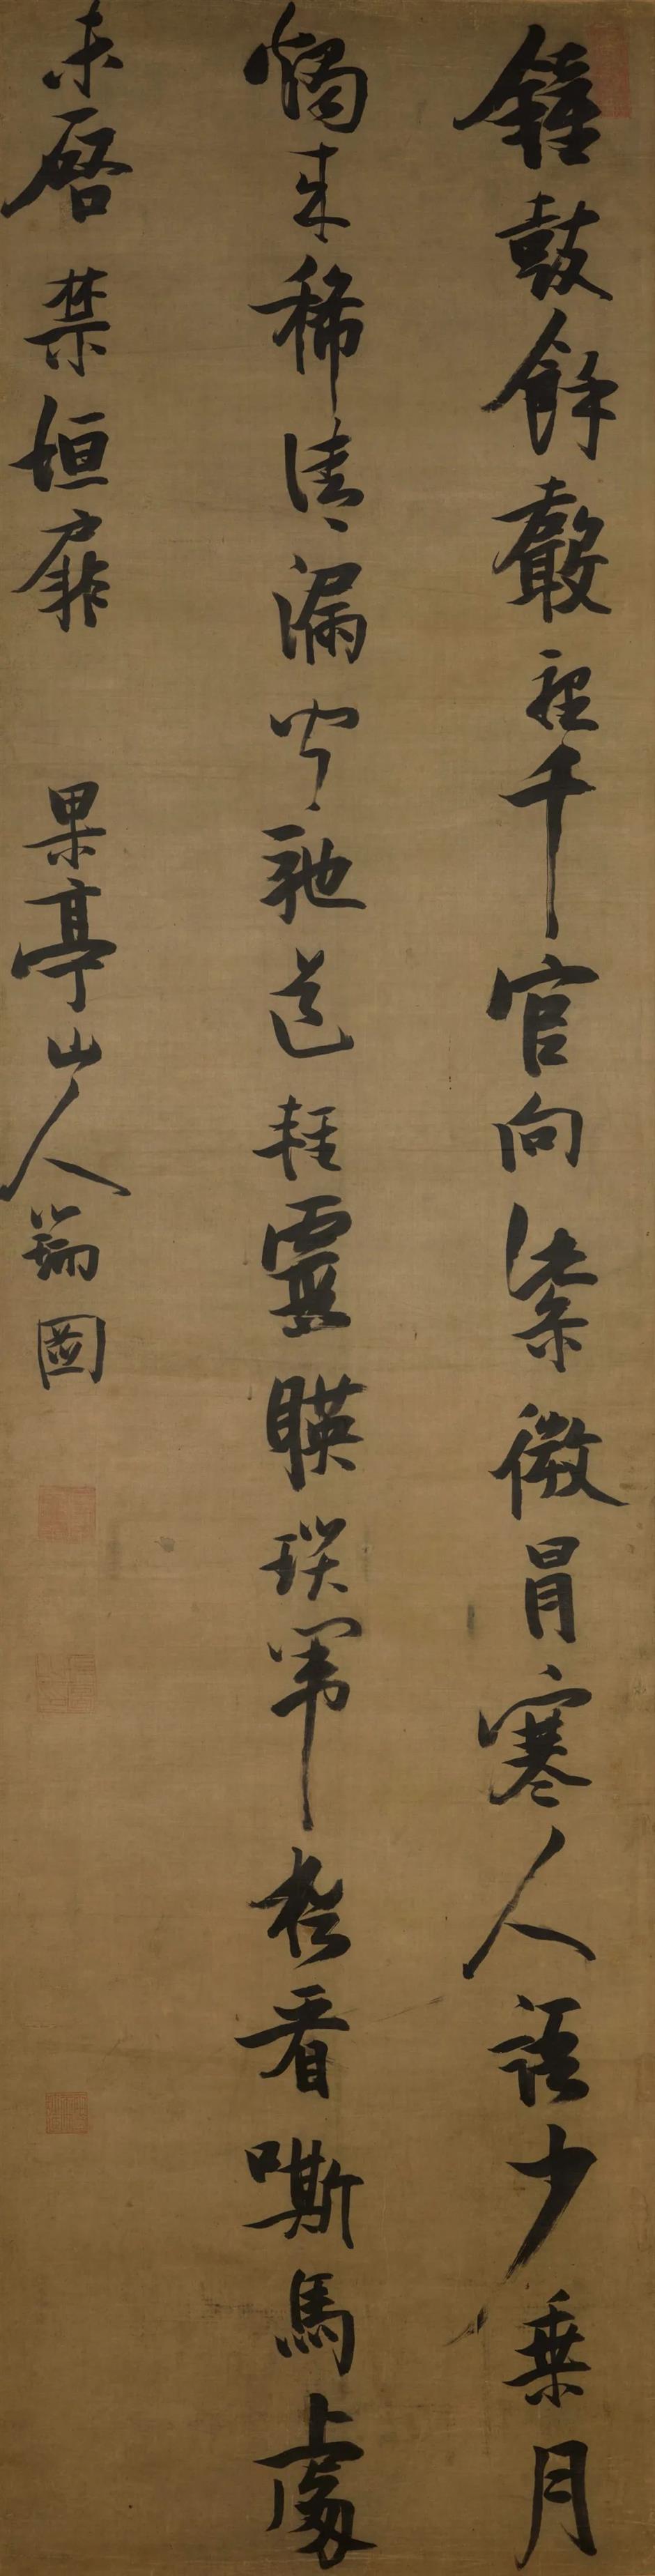 鐘鼓餘聲裡千官向紫微冒寒人語少乘月
燭来稀清漏聞馳道輕暎瑣闈看嘶馬處
未啓禁垣扉 果亭山人瑞圖